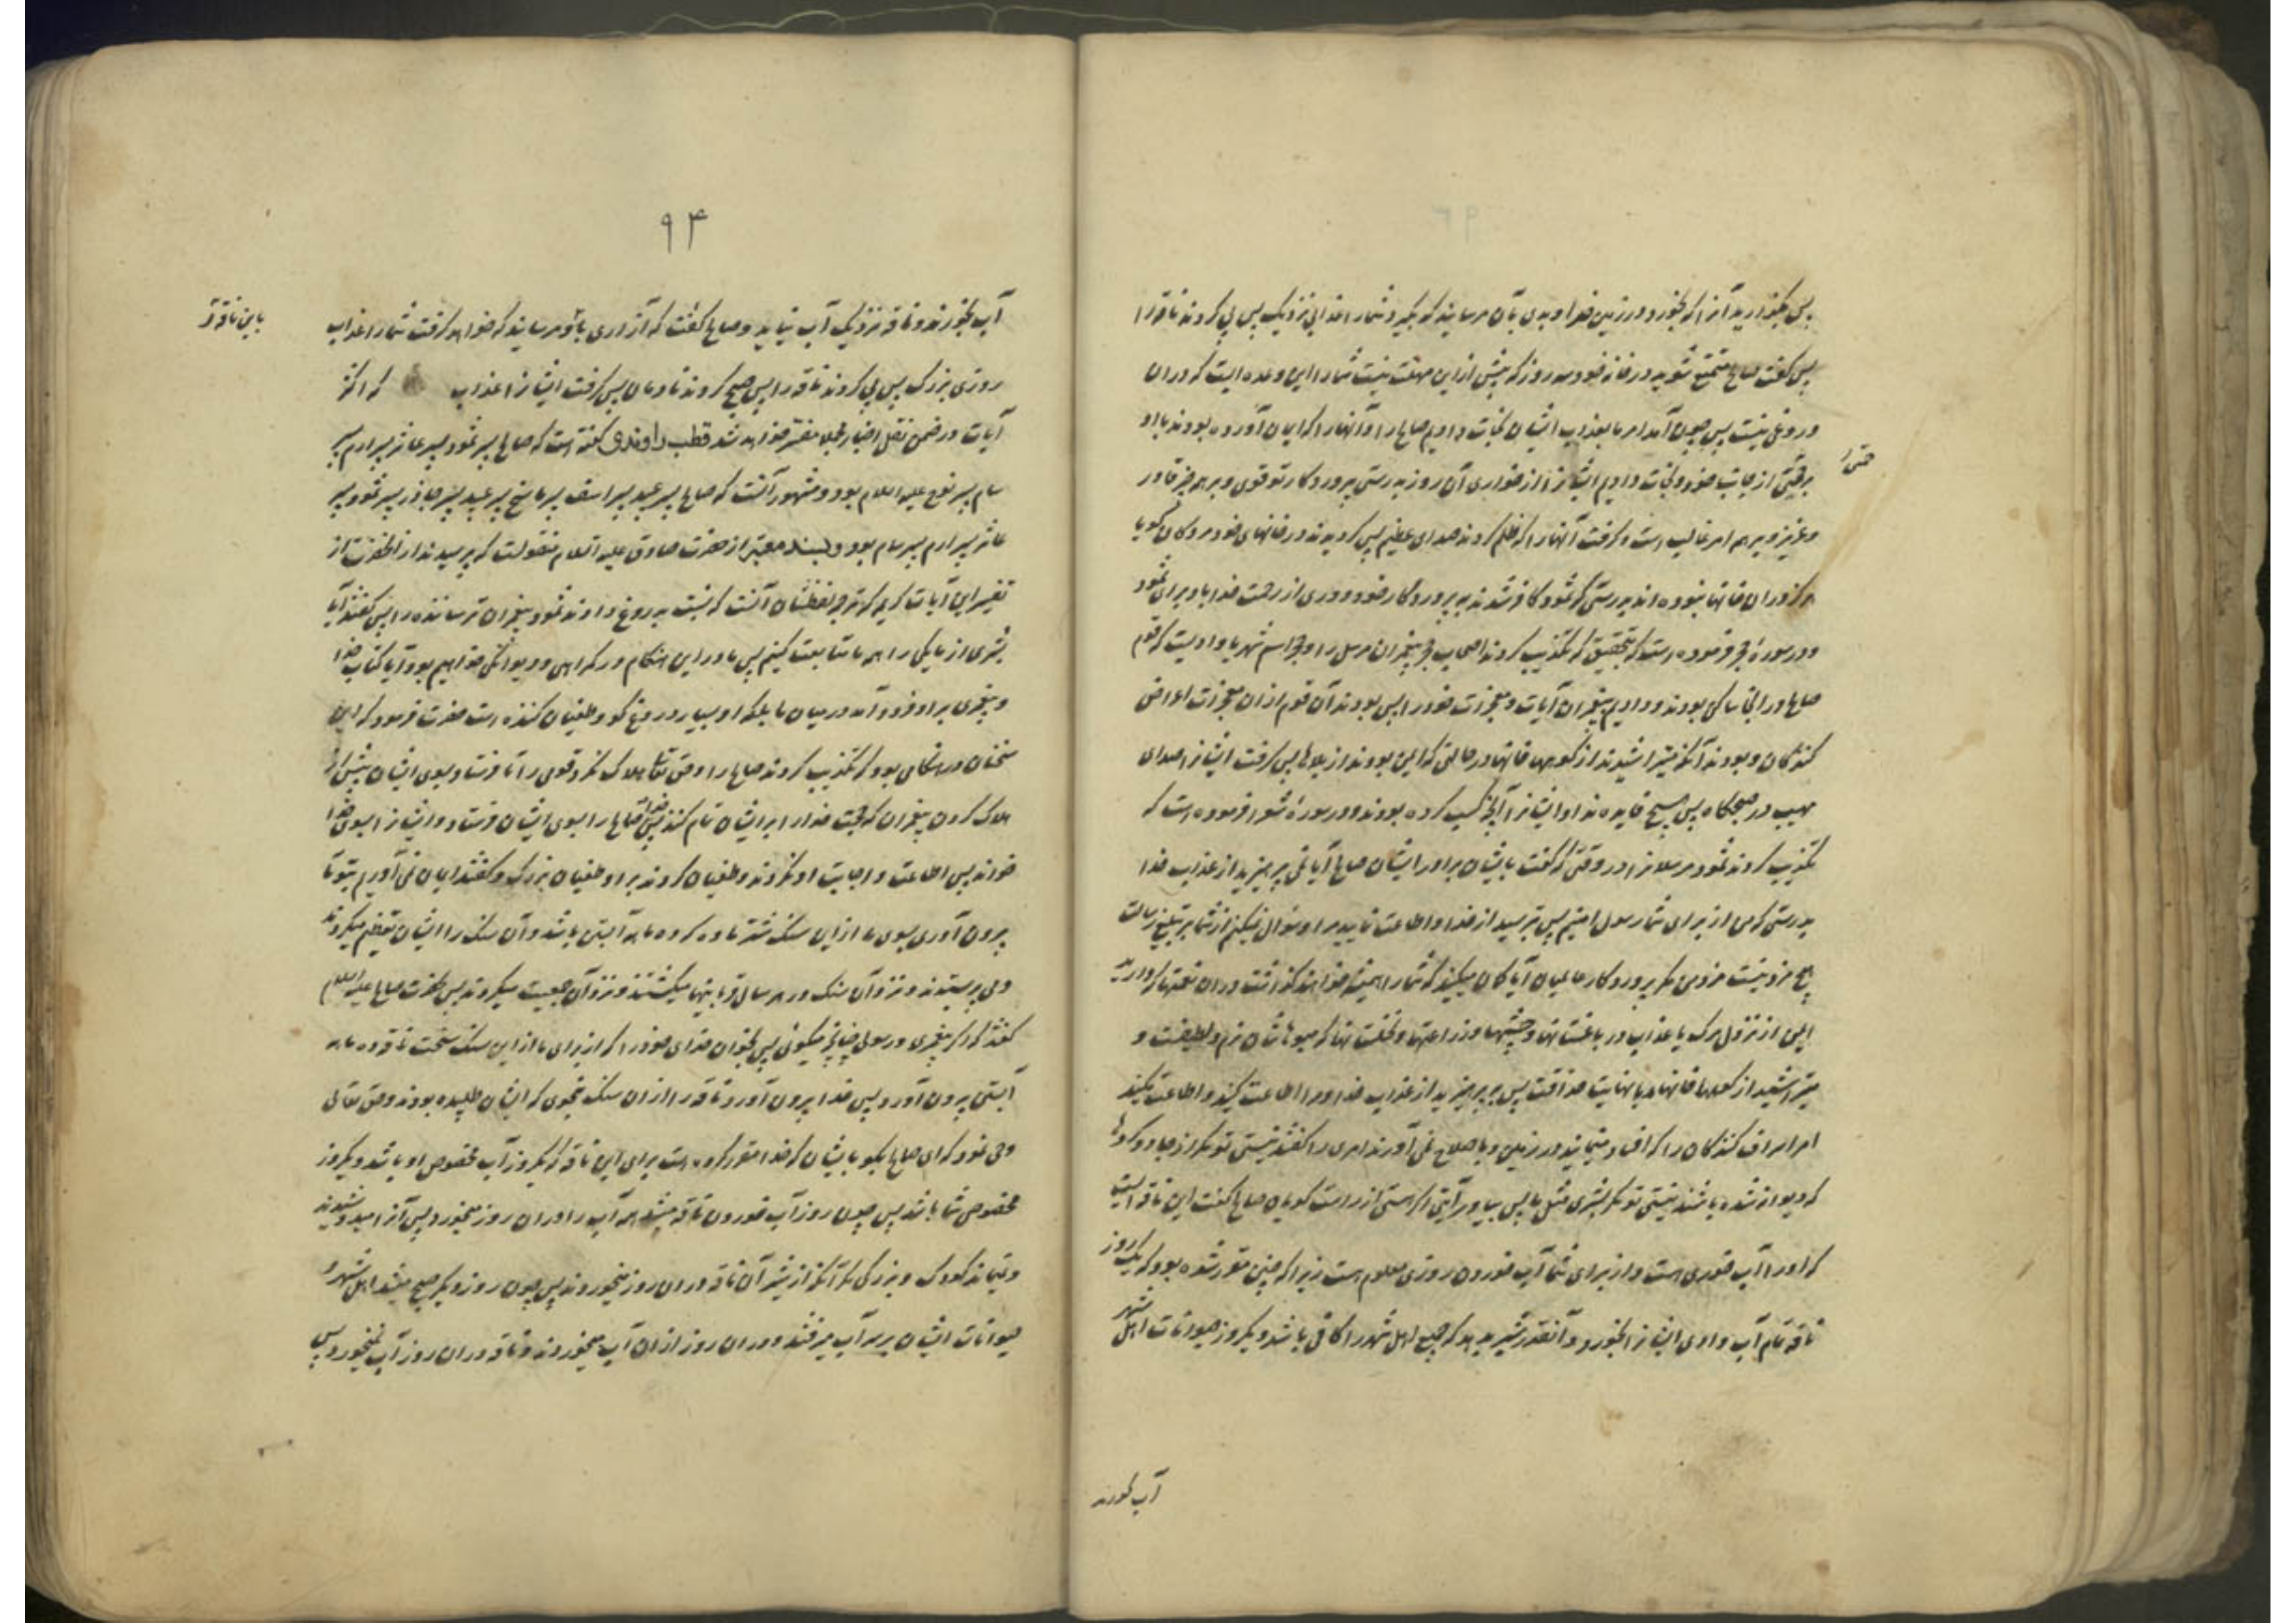 پس بگذارید آنرا که بخورد در زمین خدا و بدی بآن مرسانید که بگیرد شما را عذابی نزدیک پس پی کردند ناقه را
پس گفت صالح متمتع شوید در خانه خود سه روز که بیش از این مهلت نیست شما را این وعده ایست که در ان
دروغی نیست پس چون آمد امر ما بعذاب ایشان نجات دادیم صالح را و آنها را که ایمان آورده بودند با او
برحمتی از جانب خود و نجات دادیم ایشانرا از خواری آن روز بدرستی پروردگار تو قوی و بر هر چیز قادر
و عزیز و بر همه امر غالب است و گرفت آنها را که ظلم کردند صدای عظیم پس گردیدند در خانهای خود مردگان گویا
هرگز در ان خانها نبوده اند بدرستی که ثمود کافر شدند به پروردگار خود و دوری از رحمت خدا باد برای ثمود
و در سورهٔ حجر فرموده است که بتحقیق که تکذیب کردند اصحاب حجر پیغمبران مرسل را و حجر اسم شهر یا وادیست که قوم
صالح در انجا ساکن بودند و دادیم پیغمبران آیات و معجزات خود را پس بودند آن قوم از ان معجزات اعراض
کنندگان و بودند آنکه میتراشیدند از کوهها خانها در حالتی که ایمن بودند از بلاها پس گرفت ایشانرا صدای
مهیب در صبحگاه پس هیچ فایده نداد ایشانرا آنچه کسب کرده بودند و در سورهٔ شعرا فرموده است که
تکذیب کردند ثمود مرسلانرا در وقتی که گفت بایشان برادر ایشان صالح آیا نمی پرهیزید از عذاب خدا
بدرستی که من از برای شما رسول امینم پس بترسید از خدا و اطاعت نمایید مرا و سؤال نمیکنم از شما بر تبلیغ رسالت
هیچ مزد نیست مزد من مگر بر پروردگار عالمیان آیا گمان میکنید که شما را همیشه خواهند گذاشت در ان نعمتها که دارید
ایمن از نزول مرگ یا عذاب در باغستانها و چشمها و زراعتها و نخلستانها که میوهاشان نرم و لطیفست و
میتراشید از کوهها خانها با نهایت حذاقت پس بپرهیزید از عذاب خدا و مرا اطاعت کنید و اطاعت مکنید
امر اسراف کنندگان را که افساد مینمایند در زمین و باصلاح نمی آورند امری را گفتند نیستی تو مگر از جادو کردها
که دیوانه شده باشند نیستی تو مگر بشری مثل ما پس بیاور آیتی اگر هستی از راست گویان صالح گفت این ناقه ایست
که او را آب خوری است و از برای شما آب خوردن روزی معلوم است زیرا که چنین مقرر شده بود که یک روز
ناقه تمام آب وادی ایشانرا بخورد و آنقدر شیر بدهد که جمیع اهل شهر را کافی باشد و یکروز حیوانات اهل شهر
آب بخورند
۹۴
آب بخورند و ناقه نزدیک آب نیاید و صالح گفت که آزاری باو مرسانید که خواهد گرفت شما را عذاب
باین ناقه
روزی بزرگ پس پی کردند ناقه را پس صبح کردند نادمان پس گرفت ایشانرا عذاب که اکثر
آیات در ضمن نقل اخبار مجملا مفسر خواهد شد قطب راوندی گفته است که صالح پسر ثمود پسر عاثر پسر ارم پسر
سام پسر نوح علیه السلام بود و مشهور آنست که صالح پسر عبید پسر اسف پسر ماسخ پسر عبید پسر جاذر پسر ثمود پسر
عاثر پسر ارم پسر سام بود و بسند معتبر از حضرت صادق علیه السلام منقولست که پرسیدند از انحضرت از
تفسیر این آیات کریمه که ترجمه لفظشان آنست که نسبت بدروغ دادند ثمود پیغمبران ترساننده را پس گفتند آیا
بشری از ما یکی را همه ما متابعت کنیم پس ما در این هنگام در گمراهی و دیوانگی خواهیم بود و آیا کتاب خدا
و پیغمبری بر او فرود آمد در میان ما بلکه او بسیار دروغ گو و طغیان کننده است حضرت فرمود که این
سخنان در هنگامی بود که تکذیب کردند صالح را و حق تعالی هلاک نکرد قومی را تا فرستاد بسوی ایشان پیش از
هلاک کردن پیغمبران که حجت خدا را بر ایشان تمام کنند پس خدا صالح را بسوی ایشان فرستاد و ایشانرا بسوی خدا
خواند پس اطاعت و اجابت او نکردند و طغیان کردند بر او طغیان بزرگ و گفتند ایمان نمی آوریم بتو تا
بیرون آوری بسوی ما از این سنگ شتر ماده که ده ماهه آبستن باشد و آن سنگ را ایشان تعظیم میکردند
و می پرستیدند و نزد آن سنگ در هر سال قربانیها میکشتند و نزد آن جمعیت میکردند پس بحضرت صالح علیه السلام
گفتند که اگر پیغمبری و رسولی چنانچه میگوئی پس بخوان خدای خود را که از برای ما از این سنگ سخت ناقه ده ماهه
آبستن بیرون آورد پس خدا بیرون آورد ناقه را از ان سنگ بنحوی که ایشان طلبیده بودند و حق تعالی
وحی نمود که ای صالح بگو بایشان که خدا مقرر کرده است برای این ناقه که یکروز آب مخصوص او باشد و یکروز
مخصوص شما باشد پس چون روز آب خوردن ناقه میشد همه آب را در ان روز میخورد پس آنرا میدوشیدند
و نمیماند کودک و بزرگی مگر آنکه از شیر آن ناقه در ان روز میخوردند پس چون روز دیگر صبح میشد اهل شهر و
حیوانات ایشان بر سر آب میرفتند و در ان روز از ان آب میخوردند و ناقه در ان روز آب نمیخورد پس